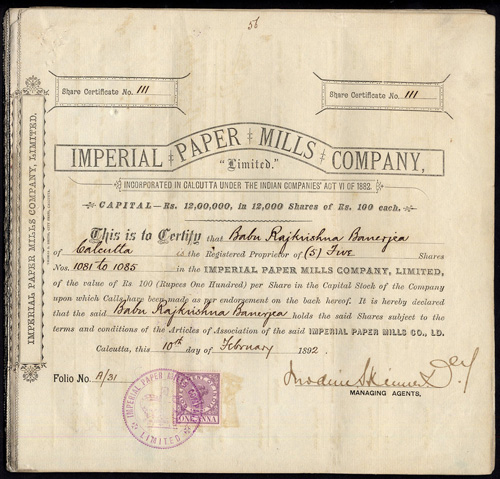 56
Share Certificate No. 111
Share Certificate No. 111
IMPERIAL PAPER MILLS COMPANY,
"Limited."
INCORPORATED IN CALCUTTA UNDER THE INDIAN COMPANIES' ACT VI OF 1882.
CAPITAL—Rs. 12,00,000, in 12,000 Shares of Rs. 100 each.
This is to Certify that Babu Rajkrishna Banerjea
of Calcutta is the Registered Proprietor of (5) Five Shares
Nos. 1081 to 1085 in the IMPERIAL PAPER MILLS COMPANY, LIMITED,
of the value of Rs. 100 (Rupees One Hundred) per Share in the Capital Stock of the Company
upon which Calls have been made as per endorsement on the back hereof. It is hereby declared
that the said Babu Rajkrishna Banerjea holds the said Shares subject to the
terms and conditions of the Articles of Association of the said IMPERIAL PAPER MILLS CO., LD.
Calcutta, this 10th day of February 1892.
Folio No. A/31
MANAGING AGENTS,
IMPERIAL PAPER MILLS
LIMITED
ONE ANNA
IMPERIAL PAPER MILLS COMPANY, LIMITED.